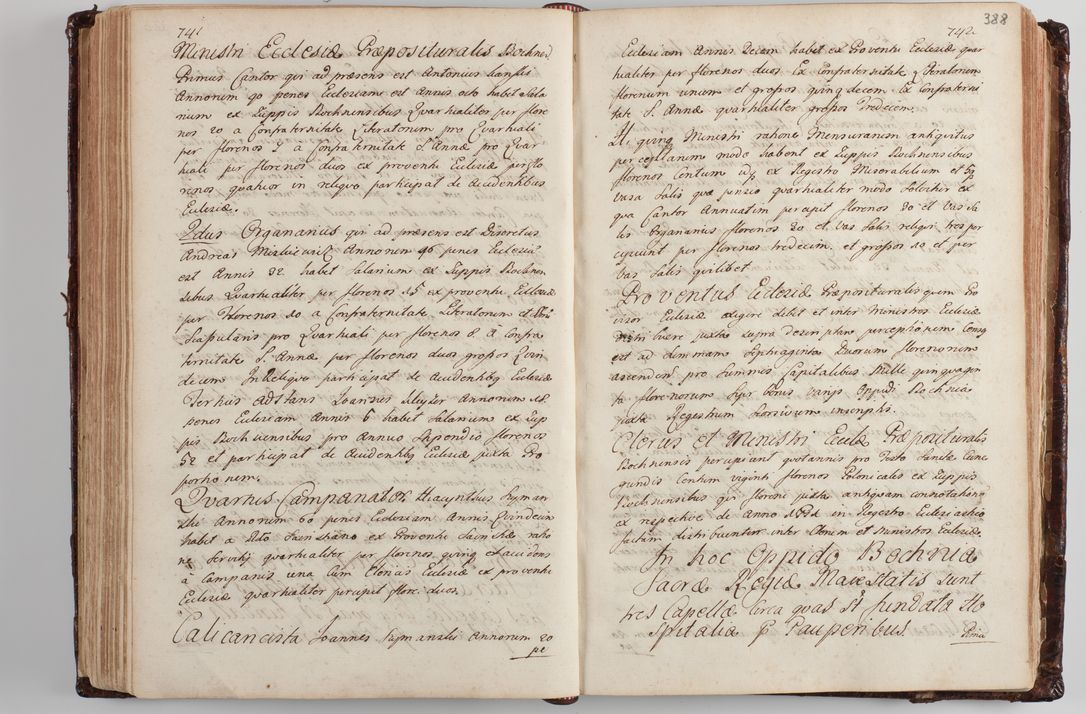 741
Ministri Ecclesiæ Præposituralis Bochnen.
Primus Cantor qui ad præsens est Antonius
Annorum 90 penes Ecclesiam est annis octo habet Sala
rium ex Zuppis Bochnensibus Quarhialiter per flore
nos 20 a Confraternitate Literatorum pro Quarhiali
per florenos a Confraternitate S. Annæ pro Quar
hiali per florenos duos ex proventu Ecclesiæ per flo
renos quatuor in reliquo participat de Accidentibus
Ecclesiæ.
2dus Organarius qui ad præsens est Discretus
Andreas annorum 46 penes Ecclesiã
est Annis 32 habet Salarium ex Zuppis Bochnen
sibus Quarhialiter per florenos 15 ex proventu Ecclesiæ
per florenos 20 a Confraternitate Literatorum et
Scapularis pro Quarhiali per florenos 8 a Confra
ternitate S. Annæ per florenos duos grossos Quin
decim In Reliquo participat de Accidentibq Ecclesiæ
Tertius adstans Joannes annorum 48
penes Ecclesiam annis 6 habet Salarium ex Zup
pis Bochnensibus pro Annuo Stipendio florenos
52 et participat de Accidentibq Ecclesiæ juxta Pro
portionem.
Quartus Campanator Hyacynthus Szyman
ski Annorum 60 penes Ecclesiam Annis Quindecim
habet a ex Proventu ratio
ne Servitij quarhialiter per florenos quinq et accidens
a Campanis una Cum Clericis Ecclesiæ ex proventu
Ecclesiæ quarhialiter percipit flore. duos.
Calicancista Joannes Szymanski Annorum 20
pe
388
742
Ecclesiam Annis Decem habet ex Proventu Ecclesiæ quar
hialiter per florenos duos Ex Confraternitate Literatorum
florenum unum et grossos quinq decem Ex Confraterni
tate S. Annæ quarhialiter grossos Tredecem
Hi quinq Ministri ratione Mensurarum antiquitus
percepi modo habent ex Zuppis Bochnensibus
florenos Centum idq ex Regestro Miserabilium et 5q
Vasa Salis quæ pensio quarhialiter modo solvitur ex
qua Cantor Annuatim percipit florenos 30 et Vas Sa
lis Organarius florenos 20 et Vas Salis reliqui tres per
cipiunt per florenos tredecim et grossos 10 et per
Vas Salis quilibet
Proventus Ecclesiæ Præposituralis quem Pro
visor Ecclesiæ exigere debet et inter Ministros Ecclesiæ
distribuere juxta supra descriptam perceptionem Consig
est ad summam Septuaginta Duorum florenorum
ascenden pro summis Capitalibus Mille quinquagin
ta florenorum super bonis varijs Oppidi Bochniæ
juxta Regestrum Seorsivum inscriptis.
Clerus et Ministri Eccliæ Præposituralis
Bochnensis percipiunt quotannis pro Festo Sanctæ Cune
gundis Centum viginti florenos Polonicales ex Zuppis
Bochnensibus qui floreni juxta antiquam connotationem
ex respective de Anno in Regestro Ecclesiæ
distribuuntur inter Clerum et Ministros Ecclesiæ.
In hoc Oppido Bochniæ
Sacræ Regiæ Maiestatis Sunt
tres Capellæ Circa quas st fundata Ho
spitalia p Pauperibus.
Prima